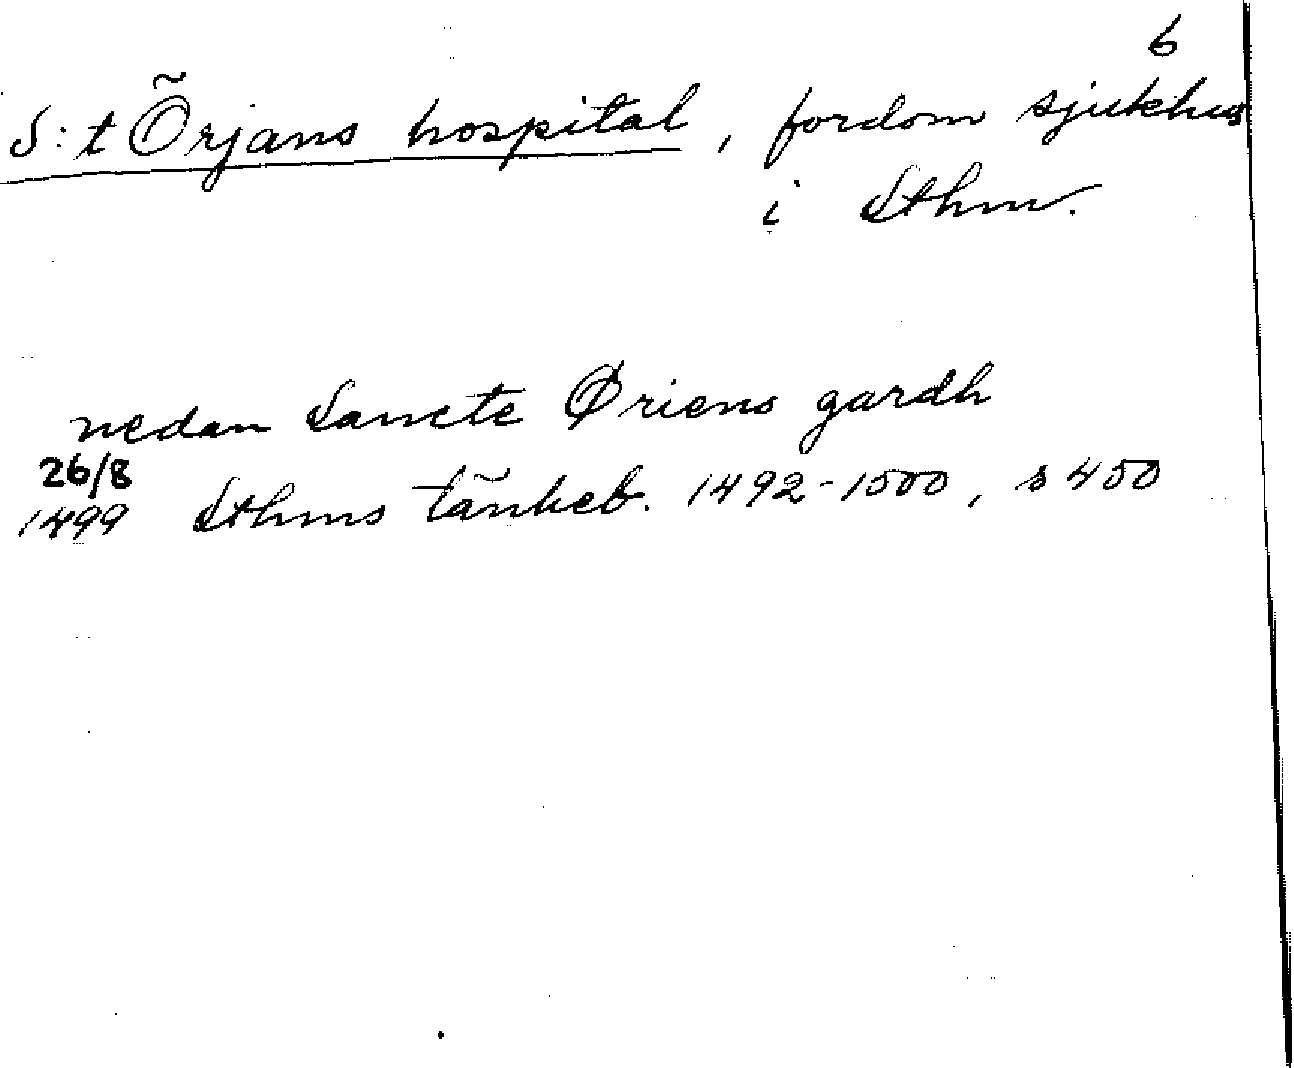 6
S:t Örjans hospital, fordom sjukhus
i Sthm.
nedan Sancte Øriens gardh
26/8
1499 Sthms tänkeb. 1492-1500, s 450